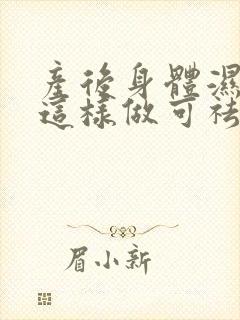 產後身體濕
這樣做可祛
眉小新